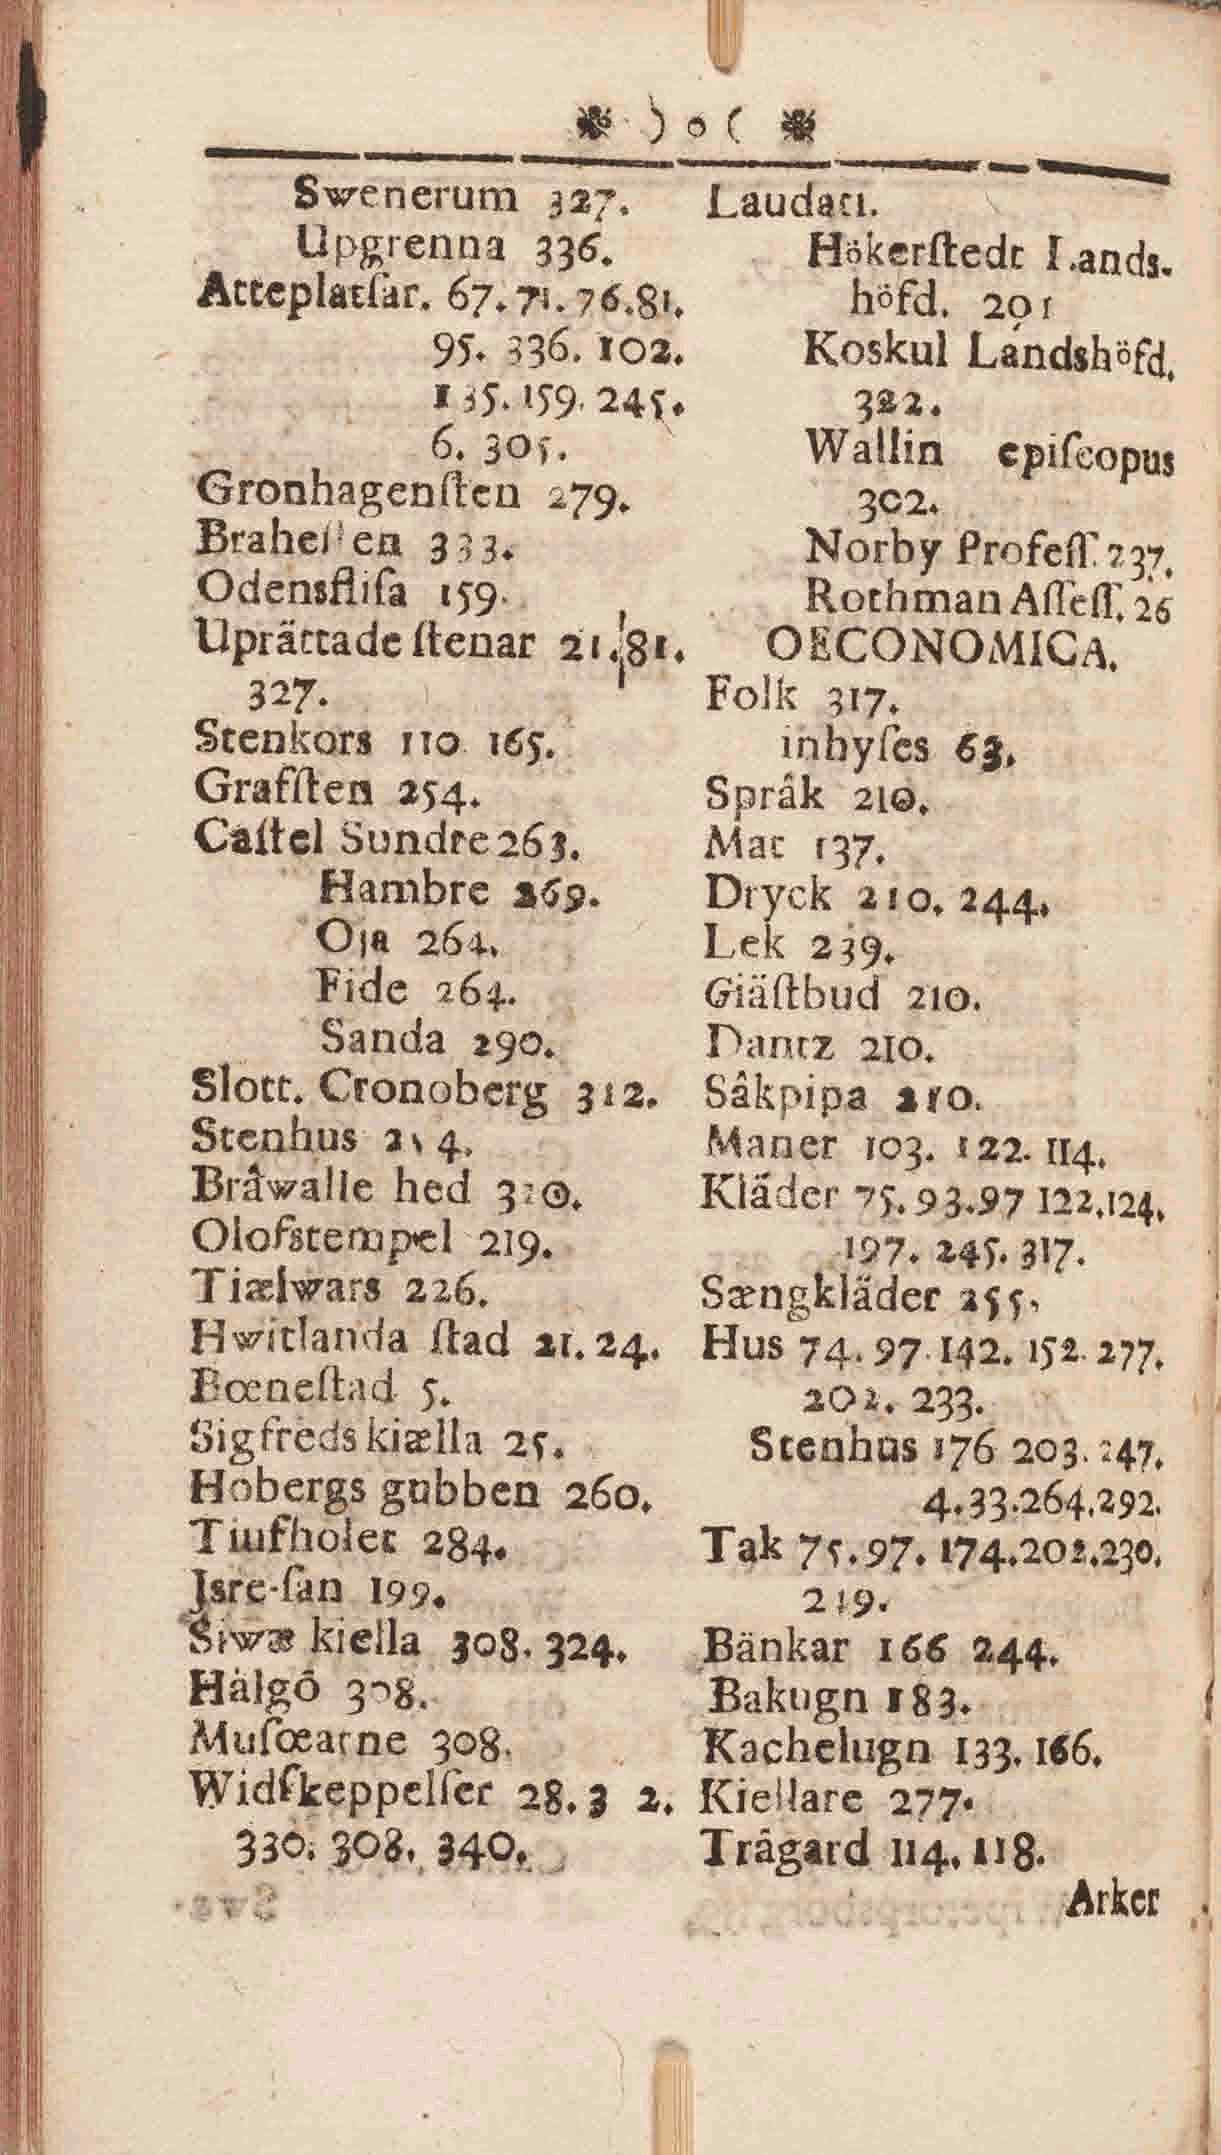 ) o (
Swenerum 327.
Upgrenna 336.
Atteplatſar. 67. 71. 76. 81.
95. 336. 102.
135. 159. 245.
6. 305.
Gronhagenſten 279.
Braheſten 333.
Odensfliſa 159.
Uprättade ſtenar 21. 81.
327.
Stenkors 110 165.
Grafſten 254.
Caſtel Sundre 263.
Hambre 269.
Oja 264.
Fide 264.
Sanda 290.
Slott. Cronoberg 312.
Stenhus 214.
Brâwalle hed 320.
Olofstempel 219.
Tiælwars 226.
Hwitlanda ſtad 21. 24.
Bœneſtad 5.
Sigfreds kiælla 25.
Hobergs gubben 260.
Tiufholet 284.
Jsre-ſan 199.
Siwæ kiella 308. 324.
Hâlgô 308.
Muſœarne 308.
Widſkeppelſer 28. 3 2.
330. 308. 340.
Laudati.
Hökerſtedt Lands-
höfd. 201
Koskul Landshöfd.
322.
Wallin epiſcopus
302.
Norby Profeſſ. 237.
Rothman Aſſeſſ. 26
OECONOMICA.
Folk 317.
inhyſes 63.
Språk 210.
Mat 137.
Dryck 210. 244.
Lek 239.
Giäſtbud 210.
Dantz 210.
Sâkpipa 210.
Maner 103. 122. 114.
Kläder 75. 93. 97 122. 124.
197. 245. 317.
Sængkläder 255.
Hus 74. 97. 142. 152. 277.
202. 233.
Stenhus 176 203. 247.
4. 33. 264. 292.
Tak 75. 97. 174. 202. 230.
219.
Bänkar 166 244.
Bakugn 183.
Kachelugn 133. 166.
Kiellare 277.
Trâgard 114. 118.
Arker